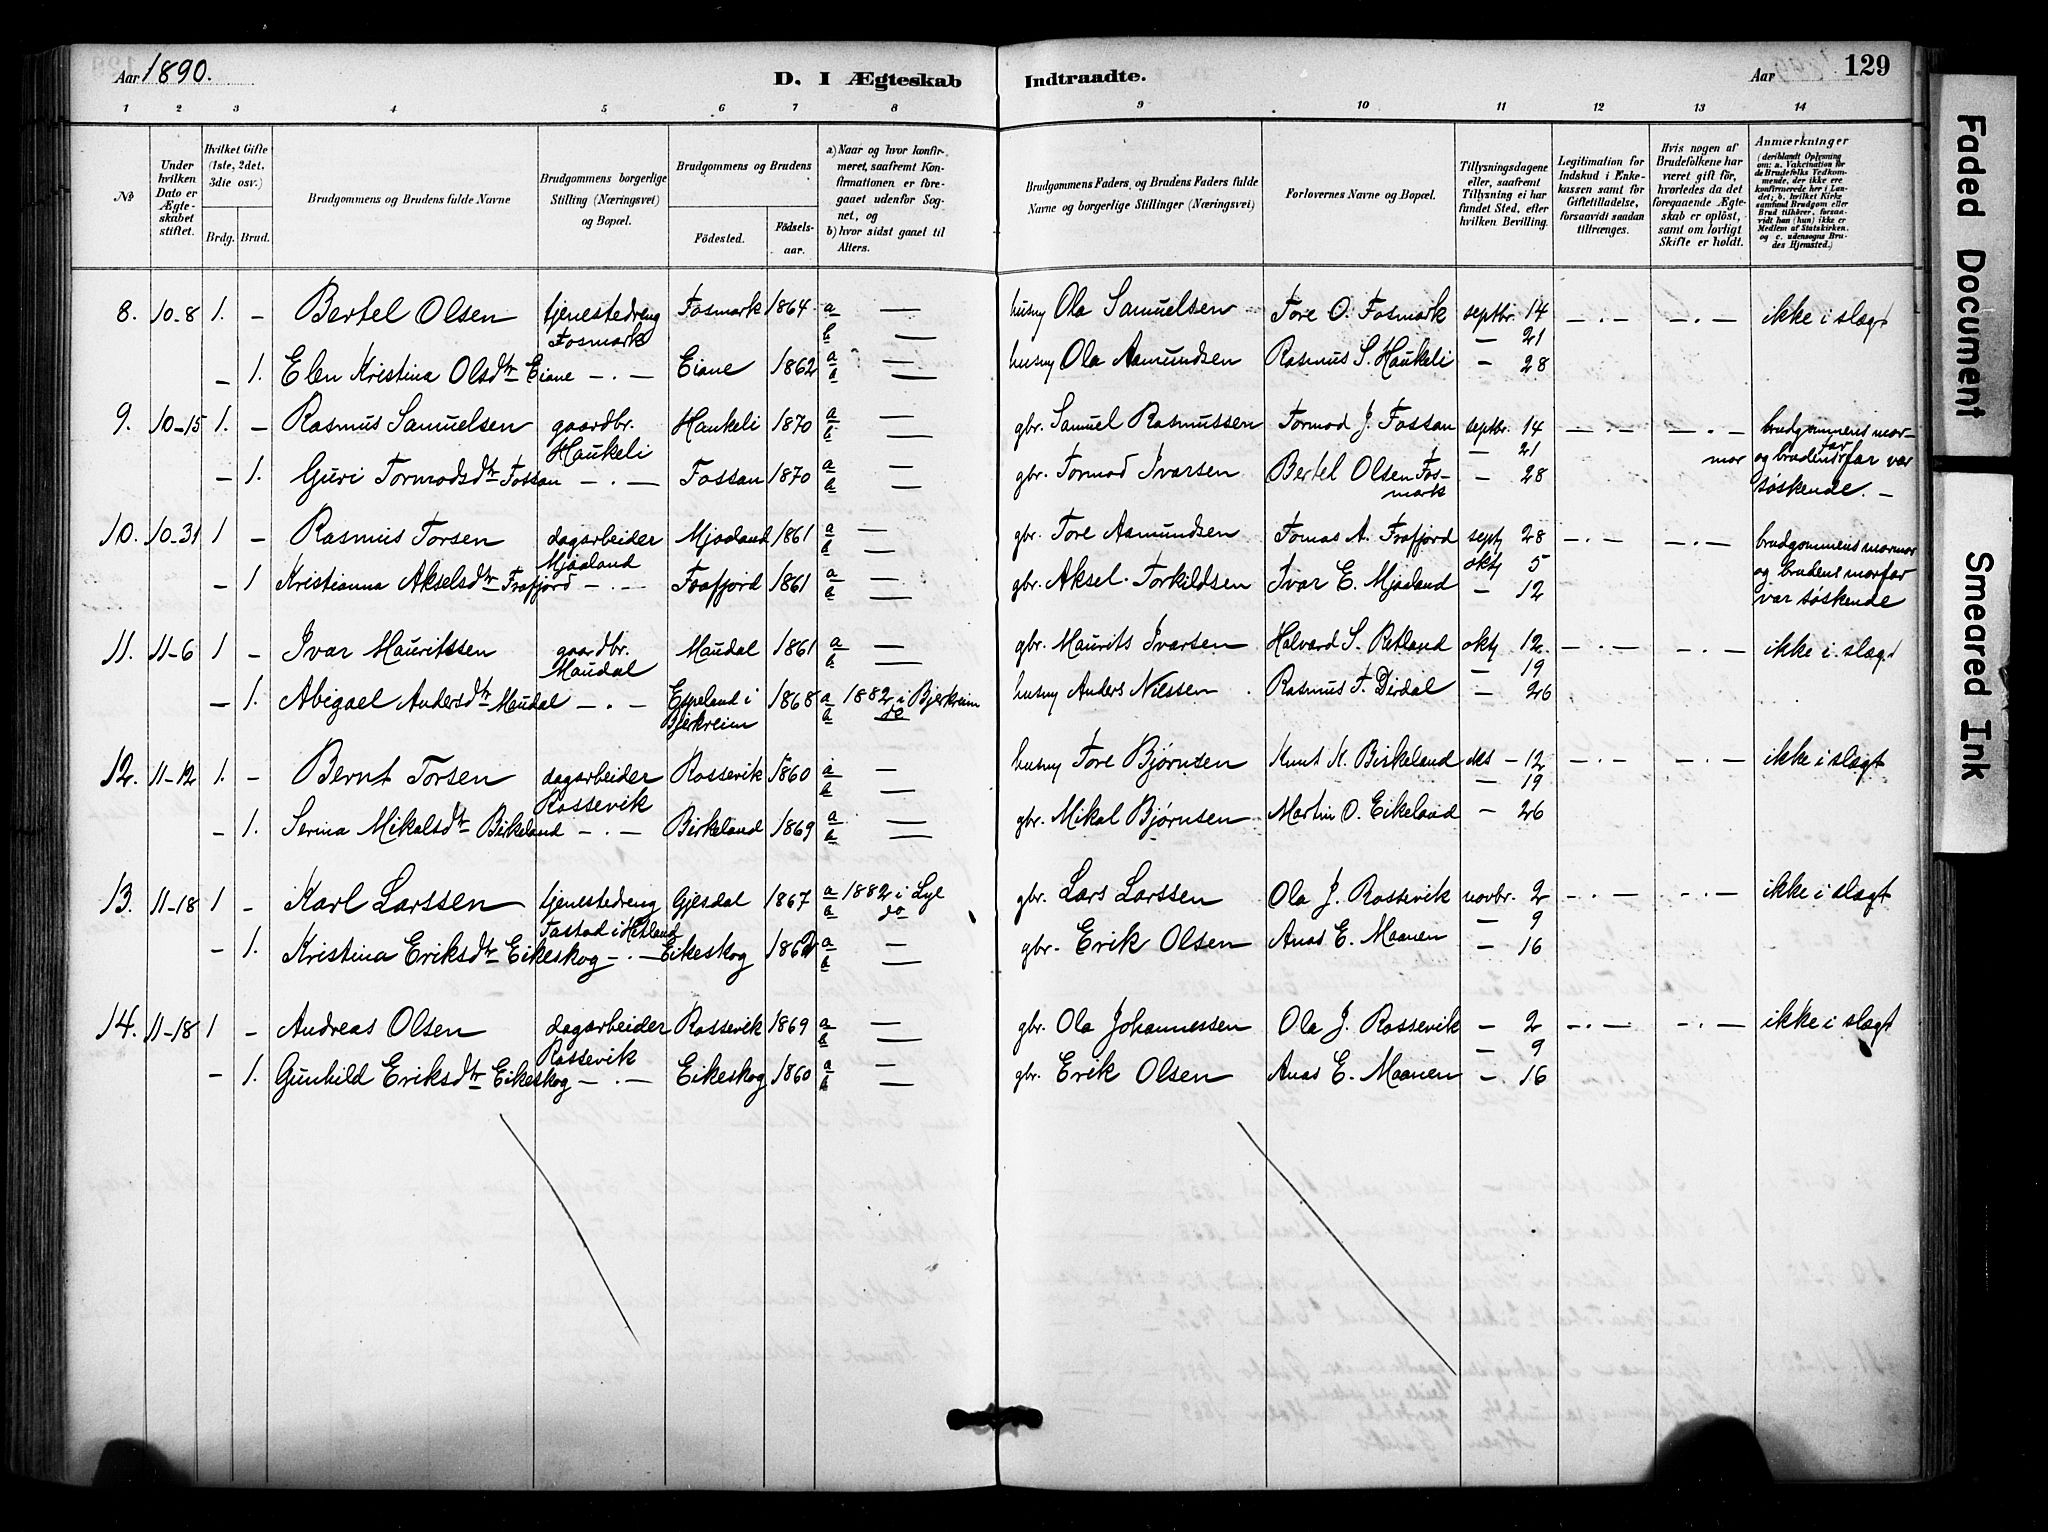 Aar 1890.
D. I Ægteskab Indtraadte.
Aar 129
1 2 3 4 5 6 7 8 9 10 11 12 13 14
№
Under hvilken Dato er Ægteskabet stiftet.
Hvilket Gifte (1ste, 2det, 3die osv.)
Brdg. Brud.
Brudgommens og Brudens fulde Navne
Brudgommens borgerlige Stilling (Næringsvei) og Bopæl.
Brudgommens og Brudens
Fødested. Fødselsaar.
a) Naar og hvor konfirmeret, saafremt Konfirmationen er foregaaet udenfor Sognet, og
b) hvor sidst gaaet til Alters.
Brudgommens Faders, og Brudens Faders fulde Navne og borgerlige Stillinger (Næringsvei)
Forlovernes Navne og Bopæl.
Tillysningsdagene eller, saafremt Tillysning ei har fundet Sted, efter hvilken Bevilling.
Legitimation for Indskud i Enkekassen samt for Giftetilladelse, forsaavidt saadan tiltrænges.
Hvis nogen af Brudefolkene har været gift før, hvorledes da det foregaaende Ægteskab er opløst, samt om lovligt Skifte er holdt.
Anmærkninger
(deriblandt Oplysning om: a. Vakcination for de Brudefolks Vedkommende, der ikke ere konfirmerede her i Landet; b. hvilket Kirkesamfund Brudgom eller Brud tilhører, forsaavidt han (hun) ikke er Medlem af Statskirken, og c. udensogns Brudes Hjemsted.)
8. 10-8 1. - Bertel Olsen tjenestedreng Fosmark 1864 a — husm Ola Samuelsen Tore O. Fosmark septbr. 14 — . — — . — ikke i slægt
Fosmark b — — 21
- 1. Elen Kristina Olsdtr Eiane — . — Eiane 1862 a b — husm Ola Aamundsen Rasmus S. Haukeli — 28
9. 10-15 1. - Rasmus Samuelsen gaardbr. Haukeli 1870 a b — gbr. Samuel Rasmussen Tormod J. Fossan septbr. 14 — . — — . — brudgommens mor-
Haukeli — 21 mor og brudens farfar var
- 1. Guri Tormodsdtr Fossan — . — Fossan 1870 a b — gbr. Tormod Ivarsen Bertel Olsen Fos- — 28 søskende. —
mark
10. 10-31 1 - Rasmus Torsen dagarbeider Mjaaland 1861 a b — gbr. Tore Aamundsen Tomas A. Frafjord sept 28 — . — — . — brudgommens mormor
Mjaaland okt 5 og brudens morfar
- 1 Kristianna Akselsdtr Frafjord — . — Frafjord 1861 a b — gbr. Aksel Torkildsen Ivar E. Mjaaland — 12 var søskende
11. 11-6 1 - Ivar Mauritssen gaardbr. Maudal 1861 a b — gbr. Maurits Ivarsen Halvard S. Øetland okt 12. — . — — . — ikke i slægt
Maudal — 19
- 1. Abigael Andersdtr Maudal — . — Espeland i 1868 a 1882 i Bjerkreim husm Anders Nilssen Rasmus T. Dirdal — 26
Bjerkreim b do
12. 11-12 1. - Bernt Torsen dagarbeider Rossevik 1860 a b — husm Tore Bjørnsen Knut K. Birkeland okt — 12 — . — — . — ikke i slægt
Rossevik — 19
- 1. Serina Mikalsdtr Birkeland — . — Birkeland 1869 a b — gbr. Mikal Bjørnsen Martin O. Eikeland — 26
13. 11-18 1 - Karl Larssen tjenestedreng Gjesdal 1867 a 1882 i Lye gbr. Lars Larssen Ola J. Rossevik novbr. 2 — . — — . — ikke i slægt
Tastad i Hetland b do — 9
- 1. Kristina Eriksdtr Eikeskog — . — Eikeskog 1862 a b — gbr. Erik Olsen Anas E. Maanen — 16
14. 11-18 1 - Andreas Olsen dagarbeider Rossevik 1869 a b — gbr. Ola Johannessen Ola J. Rossevik — 2 — . — — . — ikke i slægt
Rossevik — 9
- 1. Gunhild Eriksdtr Eikeskog — . — Eikeskog 1860 a b — gbr. Erik Olsen Anas E. Maanen — . 16
Faded Document
Smeared Ink